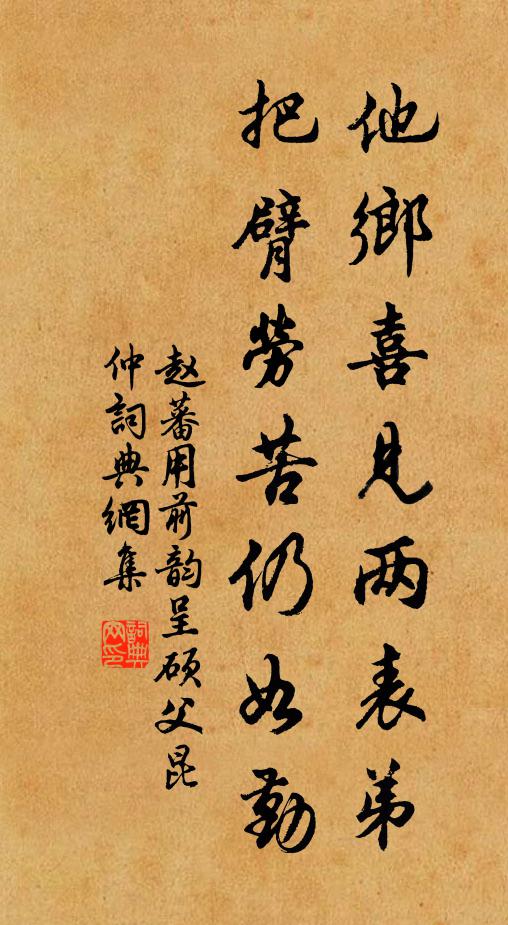 他鄉喜見两表弟
把臂勞苦仍如勤
赵蕃用前韵呈硕父昆
仲詞典網集
詞典网印